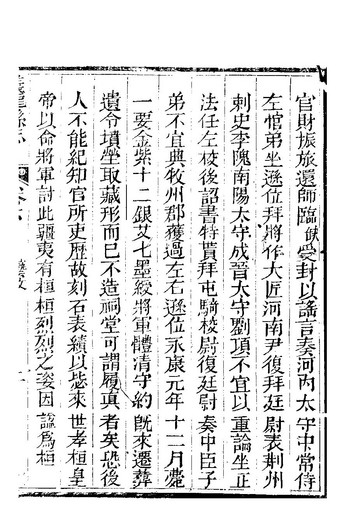 官財振旅還師臨㽞受封以謠言奏河內太守中常侍
左悺弟坐遜位拜將作大匠河南尹復拜廷尉表荆州
刺史李隗南陽太守成晉太守劉項不宜以重論坐正
法任左校後詔書特貰拜屯騎校尉復廷尉奏中臣子
弟不宜典牧州郡獲過左右遜位永康元年十二月薨
一要金紫十二銀艾七墨綬將軍體清守約旣來遷葬
遺令墳塋取藏形而巳不造祠堂可謂履真者矣恐後
人不能紀知官所更歷故刻石表績以毖來世孝桓皇
帝以命將軍討此疆夷有桓桓烈烈之姿因諡爲桓
藝文